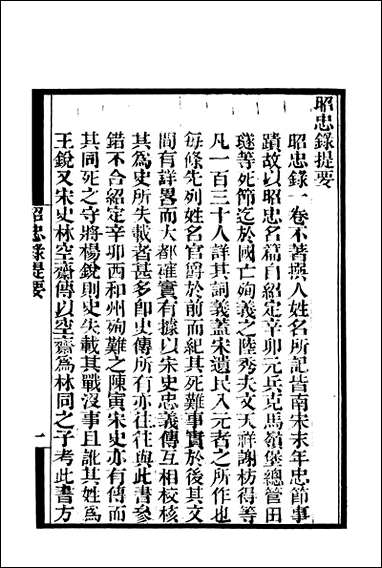 昭忠錄提要
昭忠錄一卷不著撰人姓名所記皆南宋末年忠節事
蹟故以昭忠名篇自紹定辛卯元兵克馬嶺堡總管田
璲等死節迄於國亡殉義之陸秀夫文天祥謝枋得等
凡一百三十人詳其詞義蓋宋遺民入元者之所作也
每條先列姓名官爵於前而紀其死難事實於後其文
間有詳畧而大都確實有據以宋史忠義傳互相校核
其為史所失載者甚多即史傳所有亦往往與此書參
錯不合紹定辛卯西和州殉難之陳寅宋史亦有傳而
其同死之守將楊銳則史失載其戰沒事且訛其姓為
王銳又宋史林空齋傳以空齋為林同之子考此書方
昭忠錄提要
一